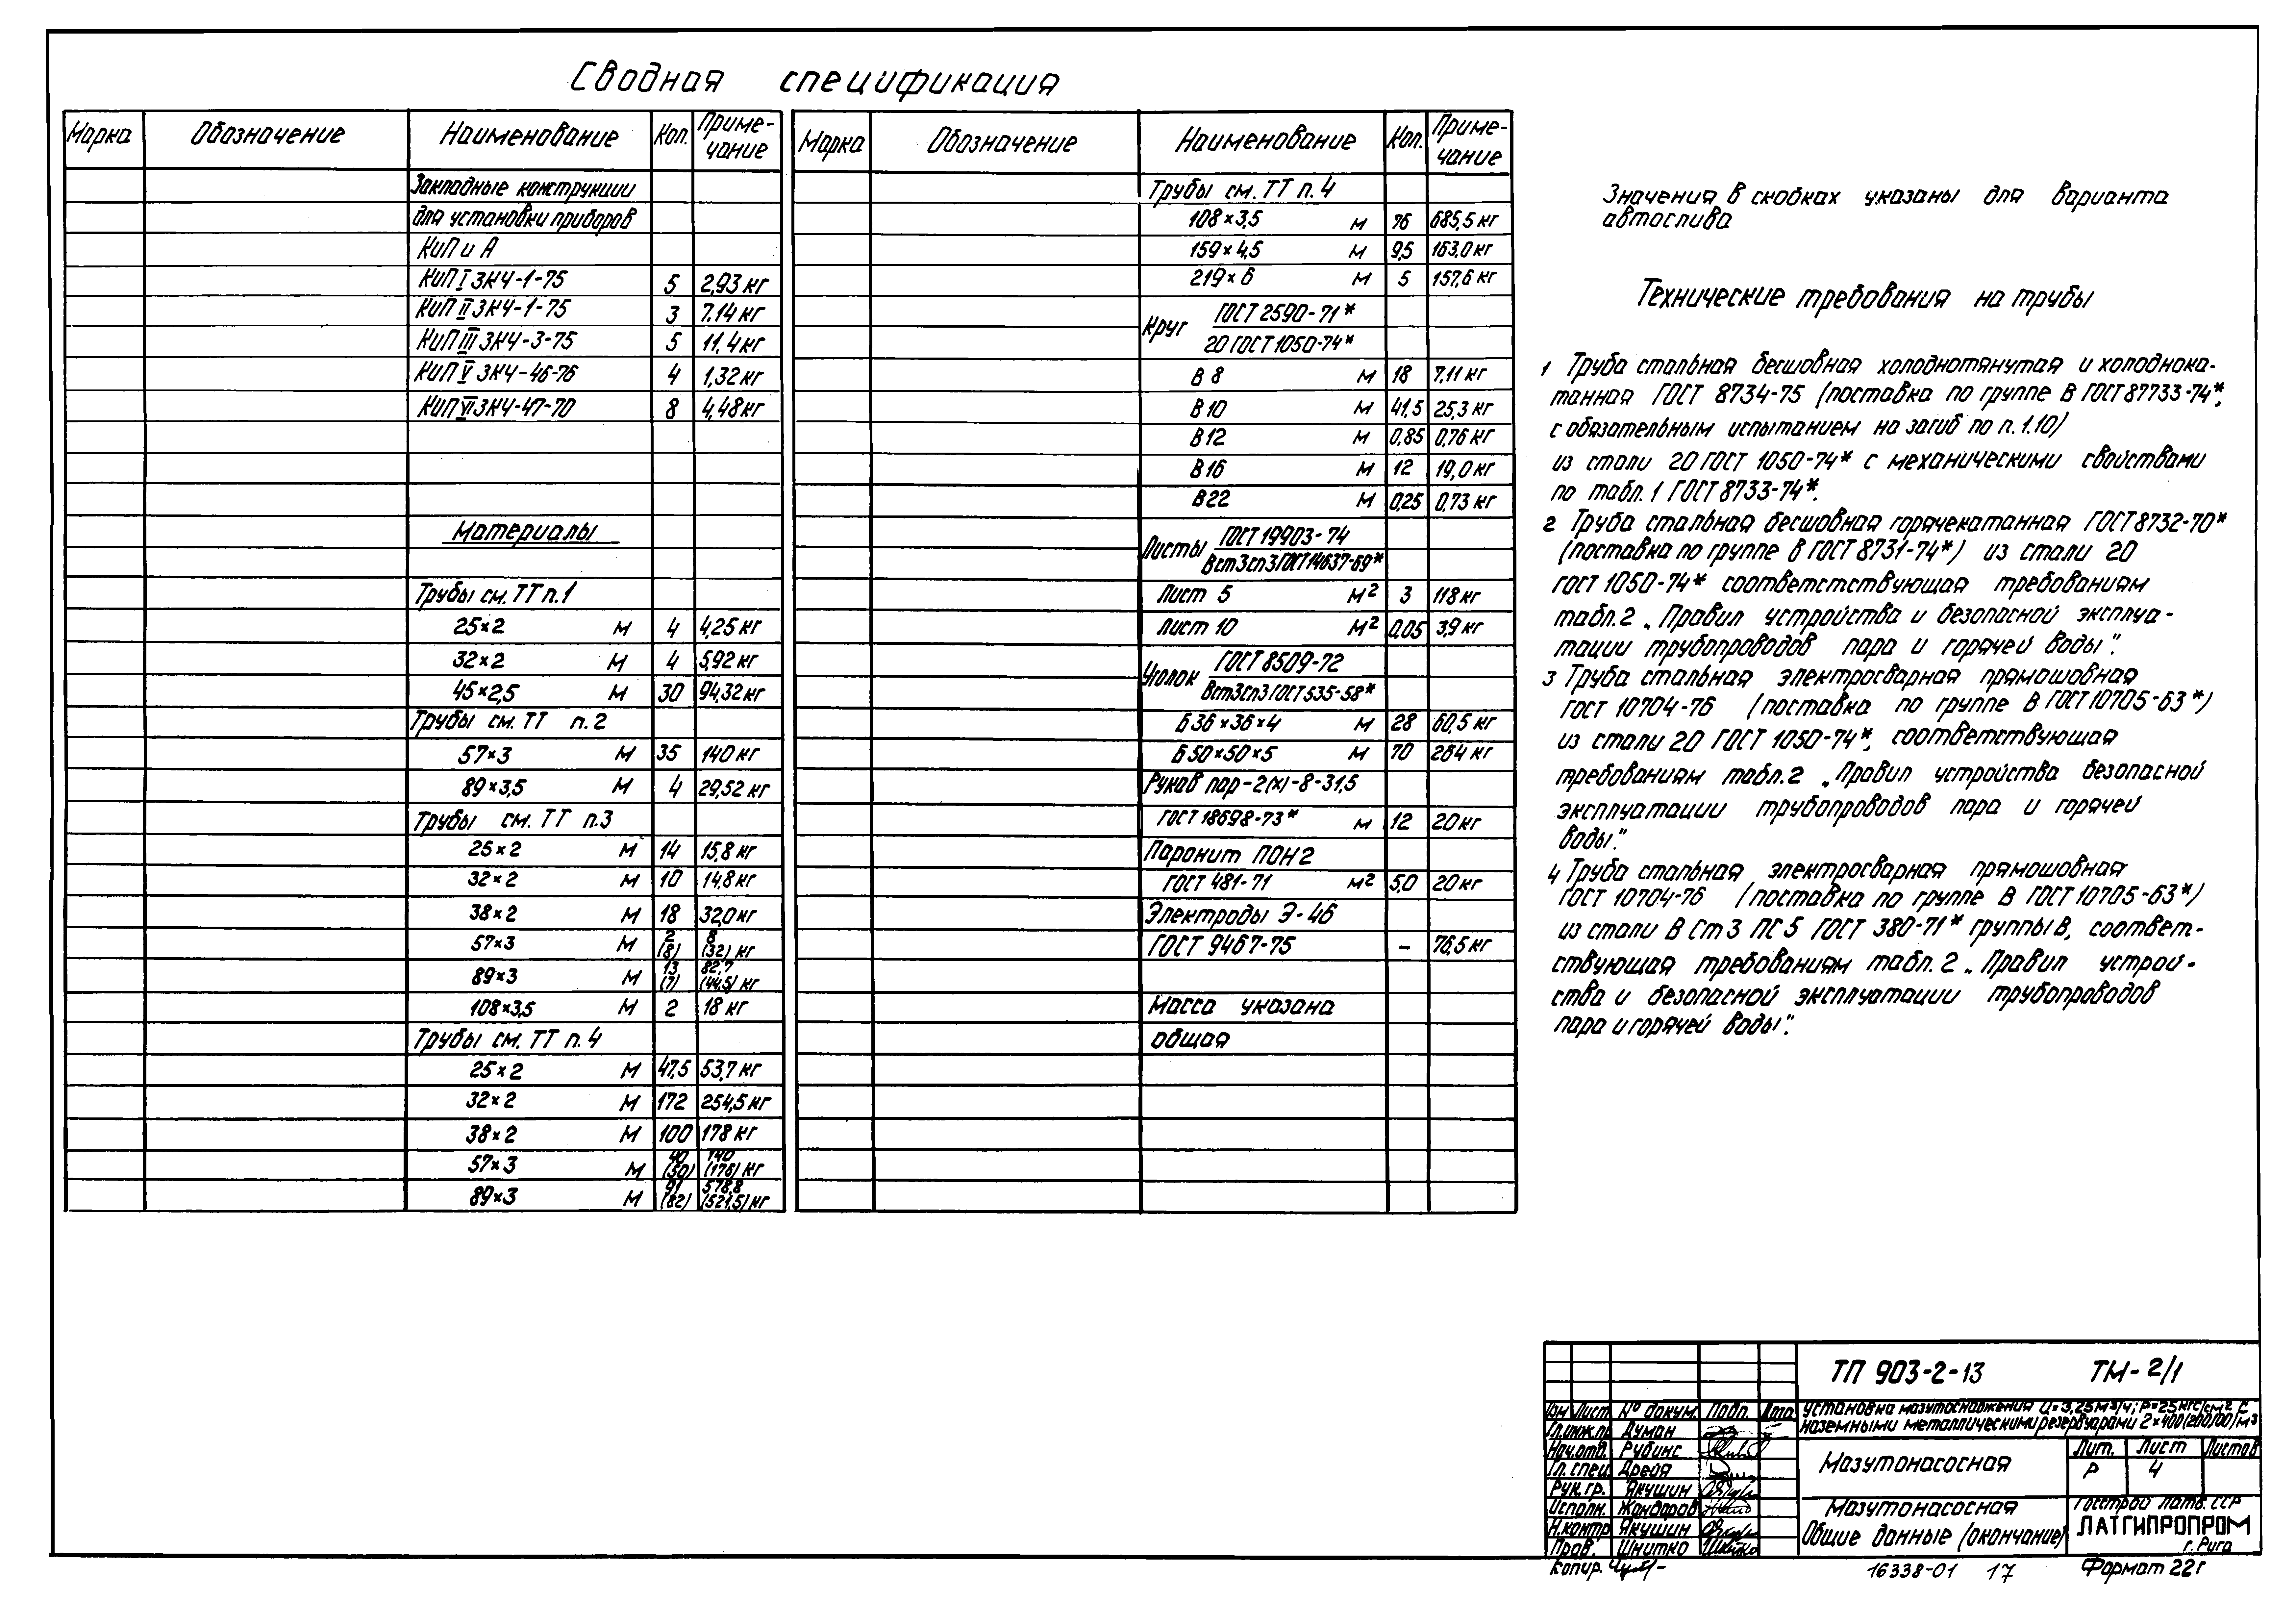 Сводная спецификация
Марка Обозначение Наименование Кол. Приме-
чание
Закладные конструкции
для установки приборов
КИП и А
КИП I ЗКЧ-1-75 5 2,93 кг
КИП II ЗКЧ-1-75 3 7.14 кг
КИП III ЗКЧ-3-75 5 11,4 кг
КИП V ЗКЧ-46-76 4 1,32 кг
КИП VI ЗКЧ-47-70 8 4,48 кг
Материалы
Трубы см. ТТ п.1
25×2 м 4 4,25 кг
32×2 м 4 5,92 кг
45×2,5 м 30 94,32 кг
Трубы см. ТТ п. 2
57×3 м 35 140 кг
89×3,5 м 4 29,52 кг
Трубы см. ТТ п.3
25×2 м 14 15,8 кг
32×2 м 10 14,8 кг
38×2 м 18 32,0 кг
57×3 м 2 (8) 8 (32) кг
89×3 м 13 (7) 82,7 (44,5) кг
108×3,5 м 2 18 кг
Трубы см. ТТ п. 4
25×2 м 47,5 53,7 кг
32×2 м 172 254,5 кг
38×2 м 100 178 кг
57×3 м 40 (50) 140 (176) кг
89×3 м 91 (82) 578,8 (521,5) кг
Марка Обозначение Наименование Кол. Приме-
чание
Трубы см. ТТ п. 4
108×3,5 м 76 685,5 кг
159×4,5 м 9,5 163,0 кг
219×6 м 5 157,6 кг
Круг ГОСТ 2590-71*
20 ГОСТ 1050-74*
В 8 м 18 7,11 кг
В 10 м 41,5 25,3 кг
В 12 м 0,85 0,76 кг
В 16 м 12 19,0 кг
В 22 м 0,25 0,73 кг
Листы ГОСТ 19903-74
Вст3сп3 ГОСТ 14637-69*
Лист 5 м² 3 118 кг
Лист 10 м² 0,05 3,9 кг
Уголок ГОСТ 8509-72
Вст3сп3 ГОСТ 535-58*
Б 36×36×4 м 28 60,5 кг
Б 50×50×5 м 70 264 кг
Рукав пар-2(х)-8-31,5
ГОСТ 18698-73* м 12 20 кг
Паронит ПОН2
ГОСТ 481-71 м² 5,0 20 кг
Электроды Э-46
ГОСТ 9467-75 – 76,5 кг
Масса указана
общая
Значения в скобках указаны для варианта
автослива
Технические требования на трубы
1 Труба стальная бесшовная холоднотянутая и холоднока-
танная ГОСТ 8734-75 (поставка по группе В ГОСТ 87733-74*,
с обязательным испытанием на загиб по п. 1.10)
из стали 20 ГОСТ 1050-74* с механическими свойствами
по табл. 1 ГОСТ 8733-74*.
2 Труба стальная бесшовная горячекатанная ГОСТ 8732-70*
(поставка по группе В ГОСТ 8731-74*) из стали 20
ГОСТ 1050-74* соответстствующая требованиям
табл. 2 „Правил устройства и безопасной эксплуа-
тации трубопроводов пара и горячей воды".
3 Труба стальная электросварная прямошовная
ГОСТ 10704-76 (поставка по группе В ГОСТ 10705-63*)
из стали 20 ГОСТ 1050-74*, соответствующая
требованиям табл. 2 „Правил устройства безопасной
эксплуатации трубопроводов пара и горячей
воды".
4 Труба стальная электросварная прямошовная
ГОСТ 10704-76 (поставка по группе В ГОСТ 10705-63*)
из стали В Ст 3 ПС 5 ГОСТ 380-71* группы В, соответ-
ствующая требованиям табл. 2 „Правил устрой-
ства и безопасной эксплуатации трубопроводов
пара и горячей воды".
ТП 903-2-13 ТМ-2/1
Изм Лист № докум. Подп. Дата
установка мазутоснабжения Q=3,25м³/ч; P=25кгс/см² с
наземными металлическими резервуарами 2×400(200,100)м³
Гл.инж.пр Думан
Нач.отд. Рубинс
Гл. спец. Дрейя
Рук. гр. Якушин
Исполн. Жандаров
Н.контр Якушин
Пров. Шнитко
Мазутонасосная
Лит. Лист Листов
Р 4
Мазутонасосная
Общие данные (окончание)
Госстрой Латв. ССР
ЛАТГИПРОПРОМ
г. Рига
Копир.
16338-01 17
Формат 22г